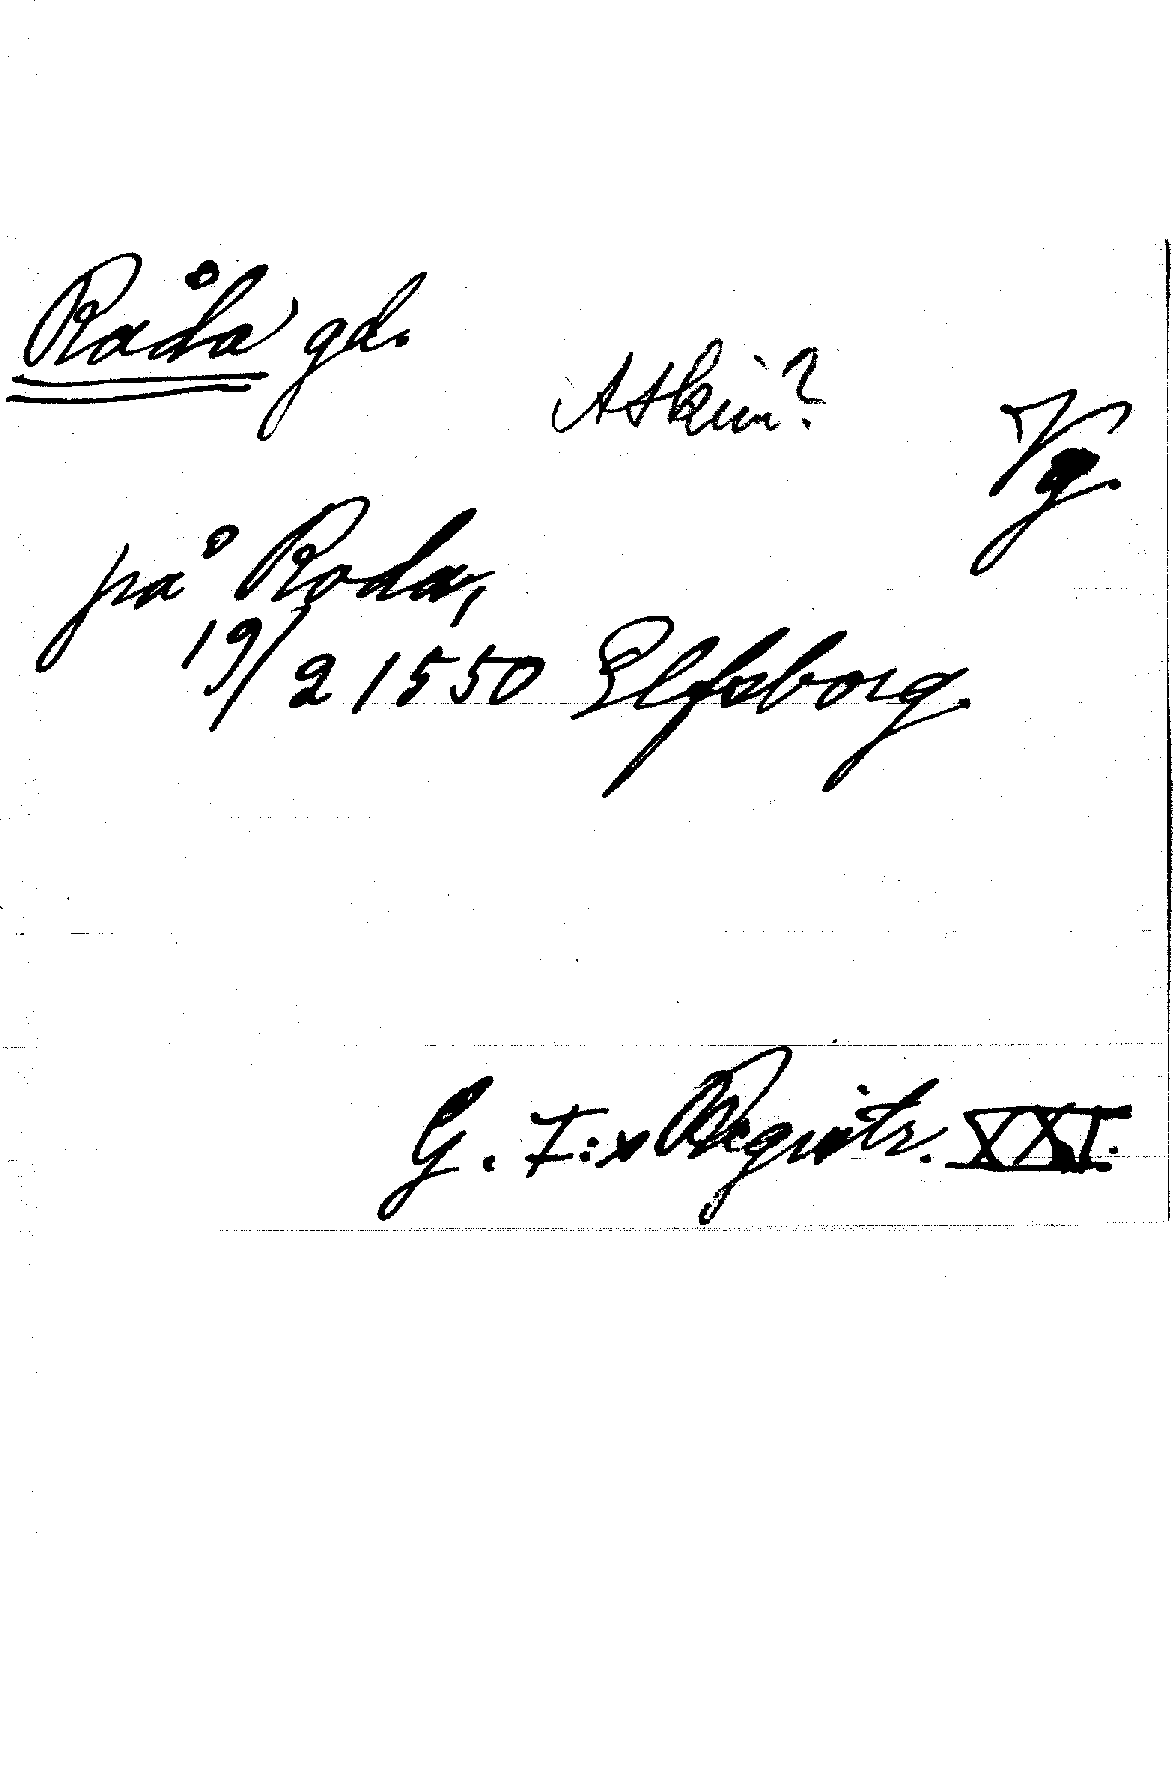 Råda gd.
Askim?
Vg.
på Roda,
19/2 1550 Elfsborg.
G. I:s Registr. XXI.